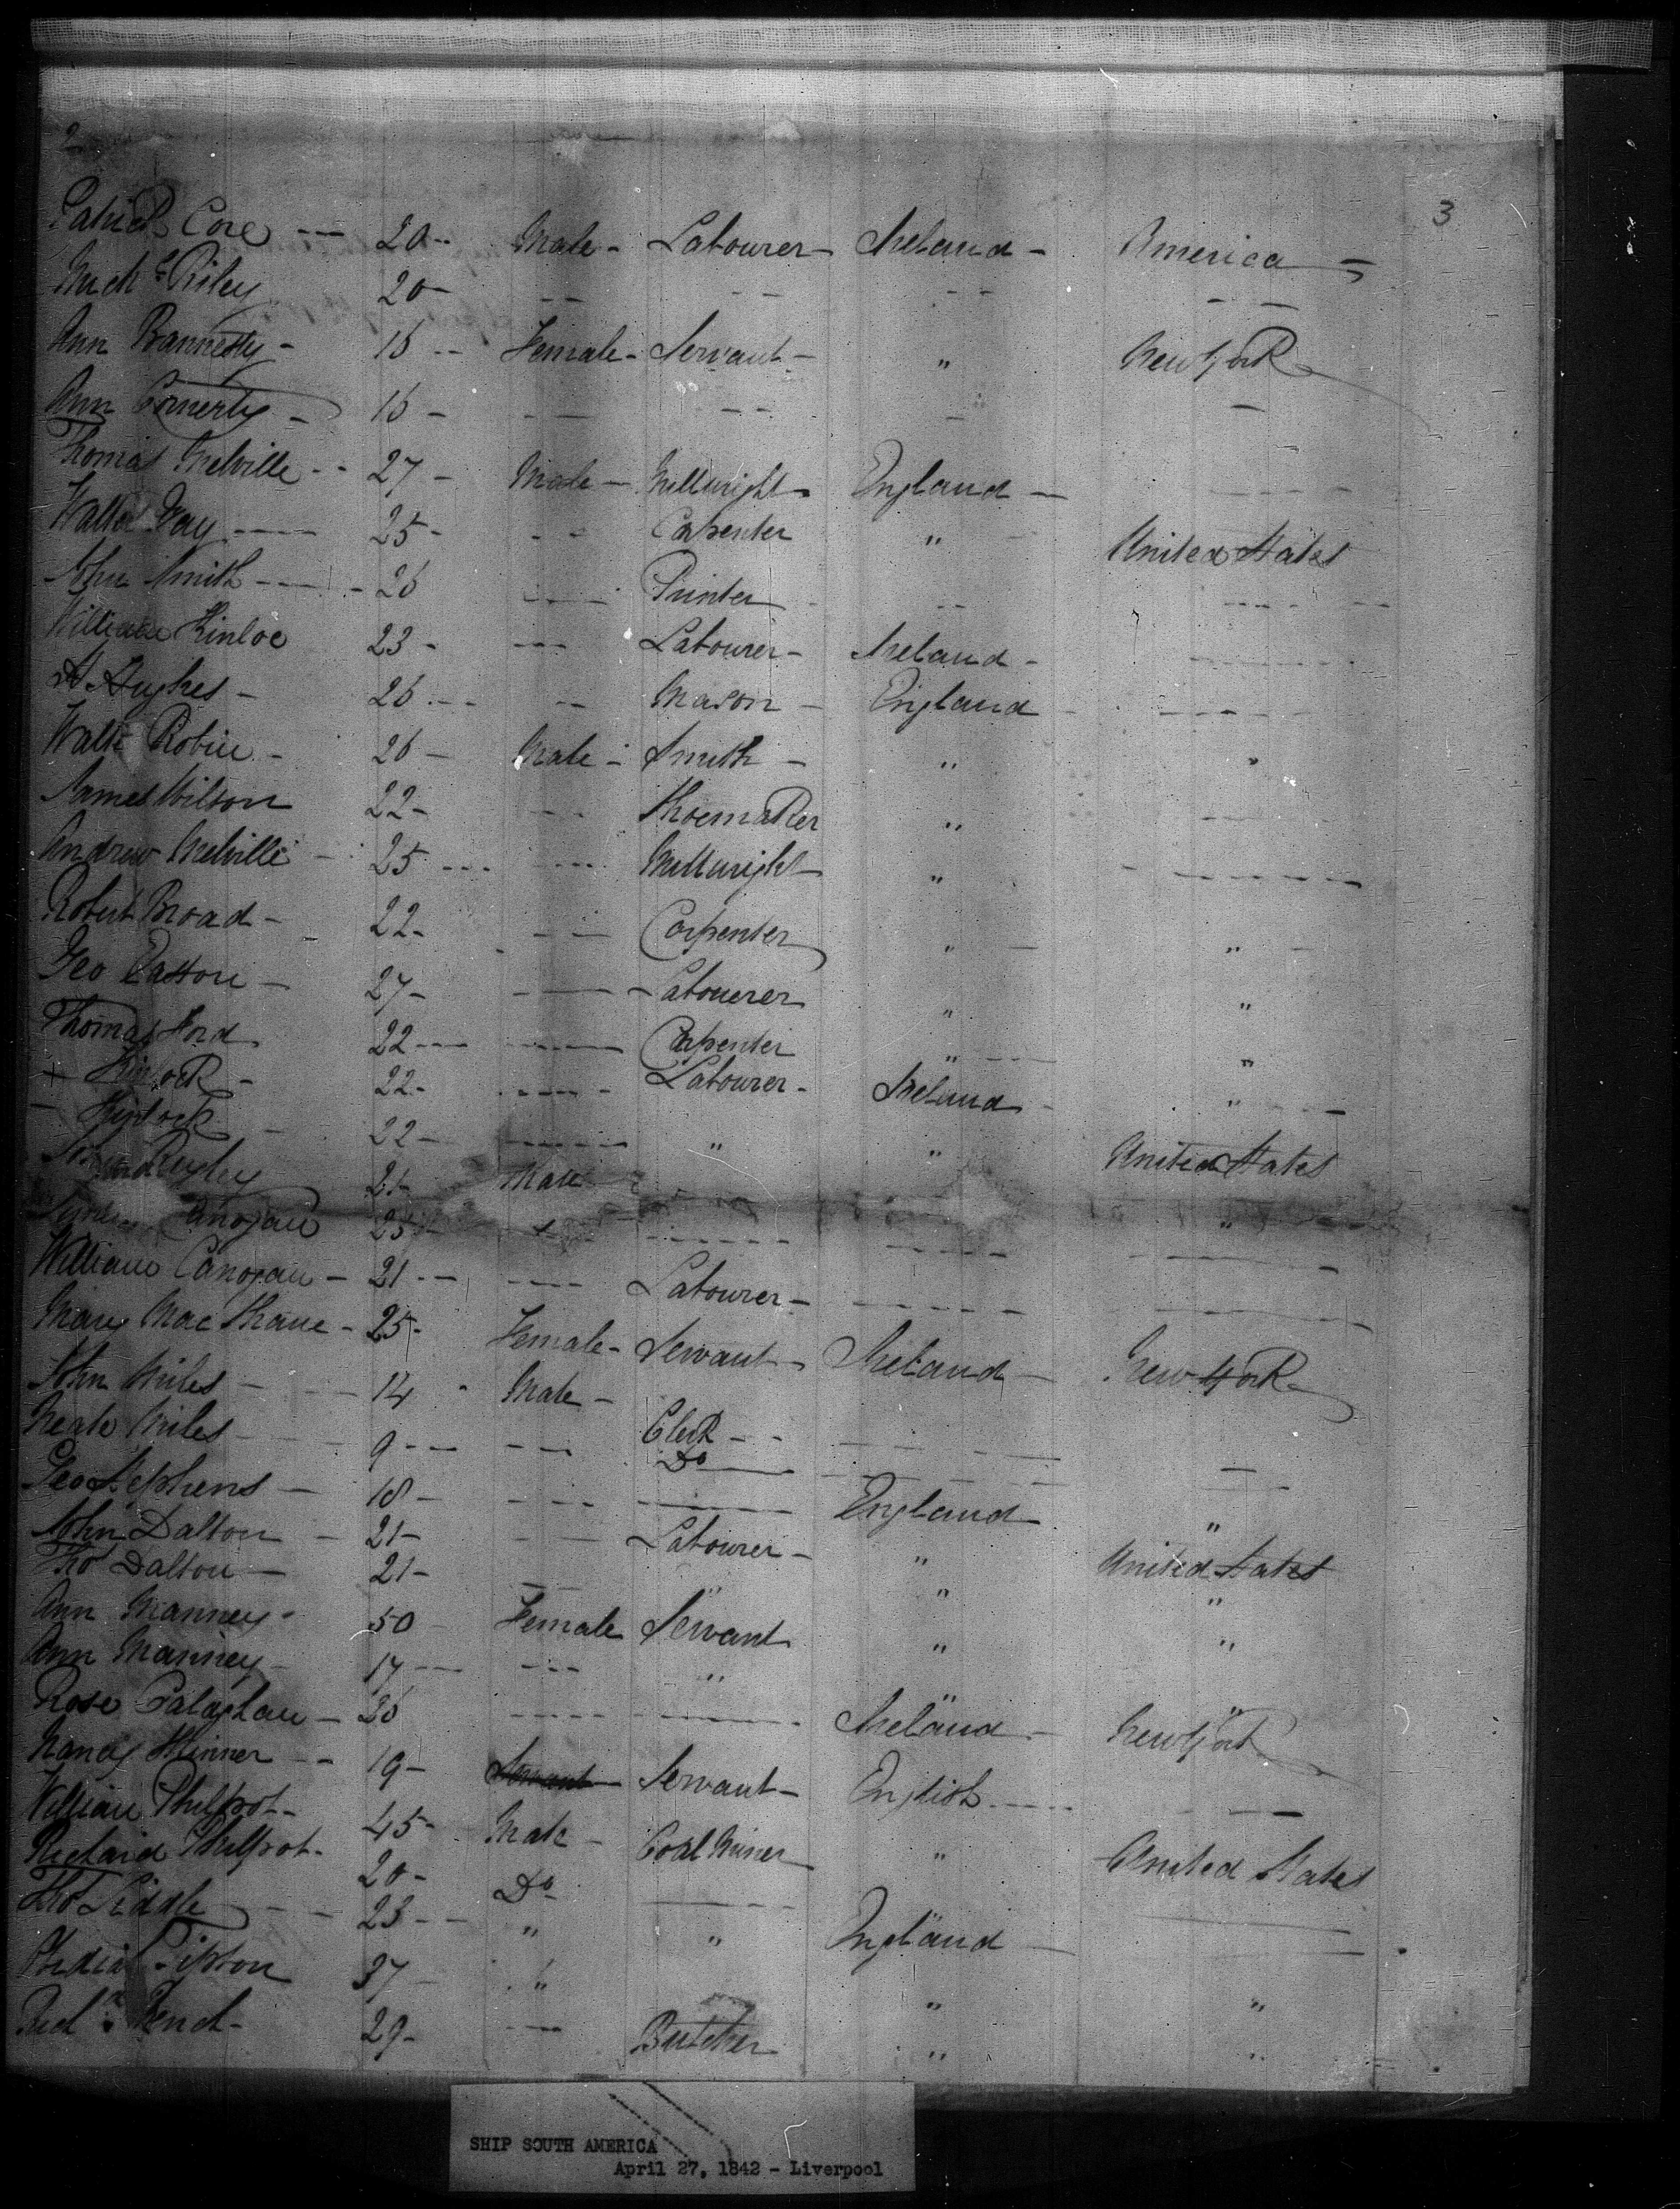 2
3
Patrick Core --- 20 -- Male - Labourer - Ireland - America -
Mich l Riley 20 - -- -- -- --
Ann Bannetty - 16 -- Female - Servant - " New York
Ann Conerty - 16 - -- -- - -
Thomas Melville -- 27 - Male - Millwright - England - ----
Walter Gay ---- 25 - -- Carpenter " United States
John Smith ---- 26 --- Printer -- ----
William Kinloc 23 - --- Labourer - Ireland - ----
A Hughes - 26 --- -- Mason - England ----
Walt Robin - 26 - Male - Smith - " "
James Wilson 22 - -- Shoemaker " --
Andrew Melville - 25 --- --- Millwright " ----
Robert Broad - 22 - -- Carpenter " "
Geo Easton - 27 - --- Labourer " "
Thomas Ford 22 --- ---- Carpenter " "
+ Kinlock - 22 - ---- Labourer - Ireland " --
- Kinlock - 22 - ---- " " United States
21 - Male "
25 ---- --- ---
William Canogan - 21 -- --- Labourer - ---- ---
Mary Mac Shane - 25 - Female - Servant - Ireland - New York
John Miles - 14 Male - Clerk -- --- -
Miles 9 -- -- Do --- -
Geo Stephens - 18 - --- --- England "
John Dalton - 21 - -- Labourer - " United States
Tho s Dalton - 21 - -- " " "
Ann Manney - 50 Female Servant " "
Ann Manney - 17 -- --- " " "
Rose Calaghan - 36 ---- --- Ireland - New York
Nancy Skinner -- 19 - Servant - English ---- --
William Philpot - 45 - Male - Coal Miner " United States
Richard Philpot - 20 - Do ---- " ---
Tho s Liddle -- 23 -- " " England - ---
Tipton 37 - " " "
Rich d French - 29 - -- Butcher " "
SHIP SOUTH AMERICA
April 27, 1842 - Liverpool